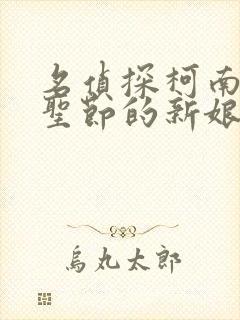 名偵探柯南
聖節的新娘
烏丸太郎